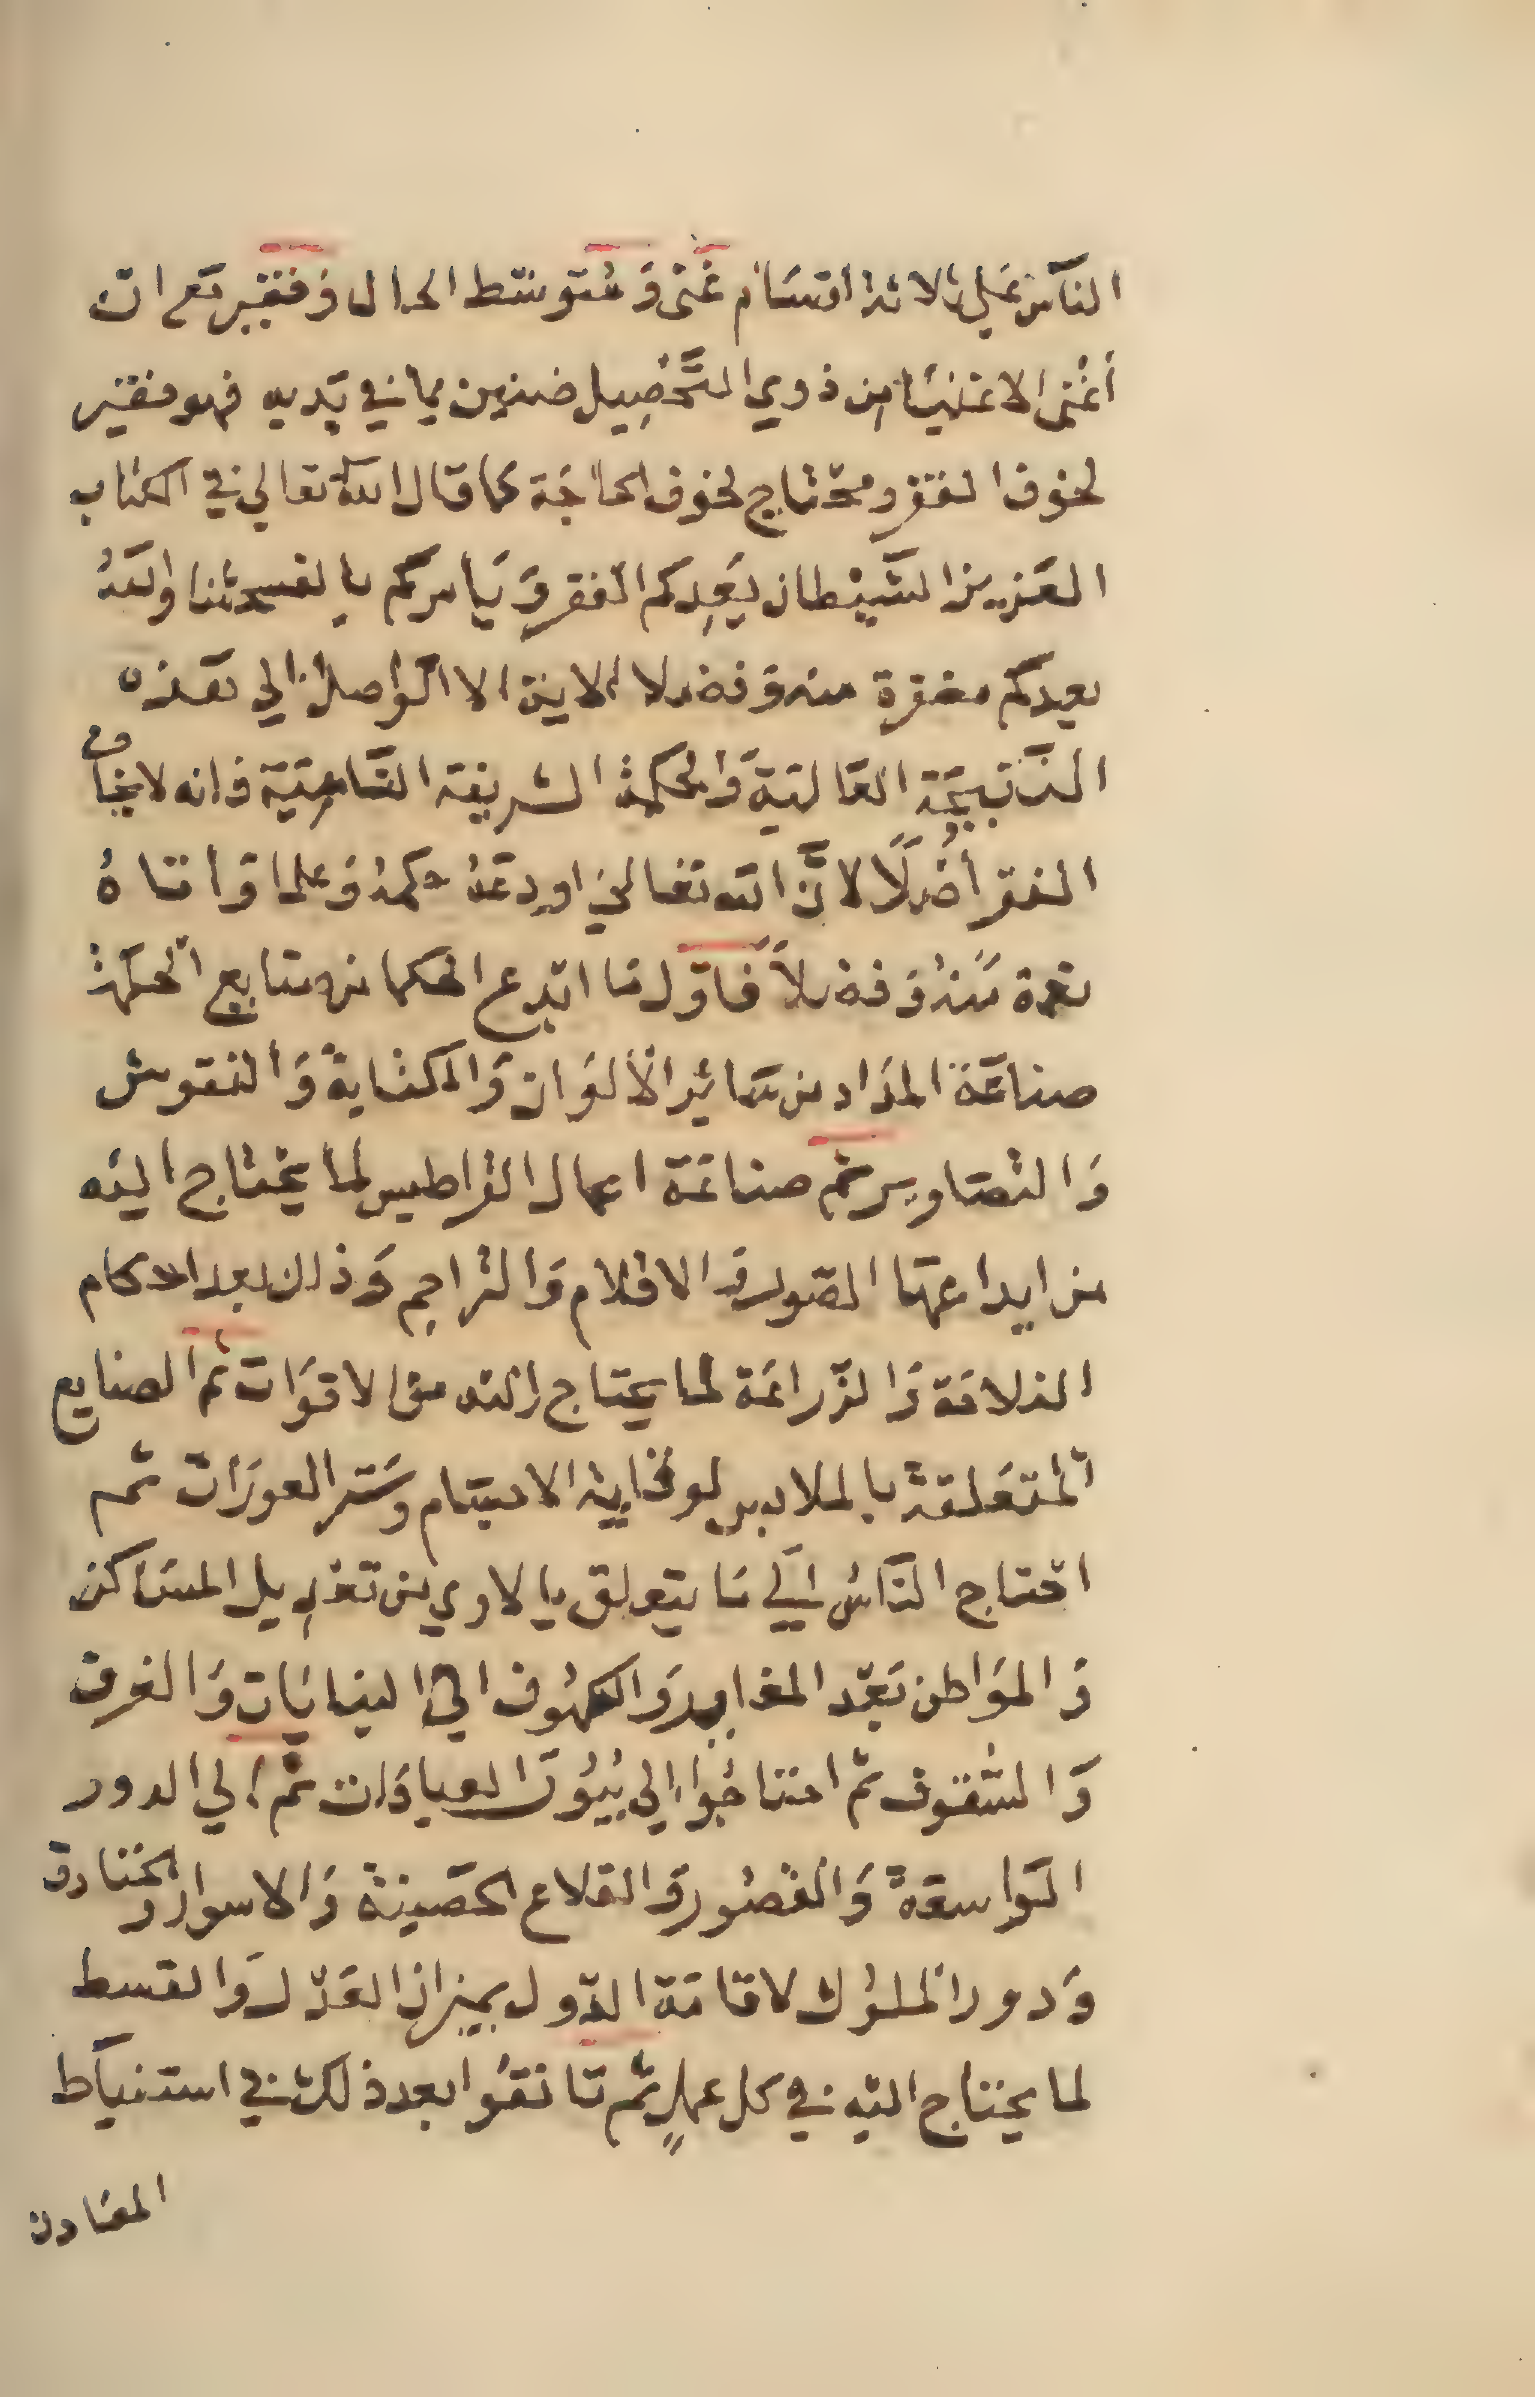 الناس على ثلاثة اقسام غنى ومتوسط الحال وفقير مع ان
أغنى الاغنياء من ذوي التحصيل ضنين بما في يديه فهو فقير
لخوف الفقر ومحتاج لخوف الحاجة كما قال الله تعالي في الكتاب
العزيز الشيطان يعدكم الفقر ويامركم بالفحشا والله
يعدكم مغفرة منه وفضلا الاية الا الواصل الي هذه
النتيجة العالية والحكمة الشريفة فانه لا يخاف
الفقر أصلًا لانَّ الله تعالي اودعه حكمة وعلما وأتاه
نعمة منه وفضلاً فاول ما ابدع الحكما من منابع الحكمة
صناعة المداد من سائر الألوان والكتابة والنقوش
والتصاوير ثم صناعة اعمال القراطيس لما يحتاج اليه
من ايداعها الصور والاقلام والتراجم وذلك بعد احكام
الفلاحة والزراعة لما يحتاج اليه من الاقوات ثم الصنايع
المتعلقة بالملابس لوقاية الاجسام وستر العورات ثم
احتاج الناس الي ما يتعلق بالاوي من تعديل المساكن
والمواطن بعد المغاير والكهوف الي البنايات والغرف
والسقوف ثم احتاجوا الي بيوت العبادات ثم الي الدور
الواسعة والقصور والقلاع الحصينة والاسوار والخنادق
ودور الملوك لاقامة الدول بميزان العدل والقسط
لما يحتاج اليه في كل عملٍ ثم تانقوا بعد ذلك في استنباط
المعادن